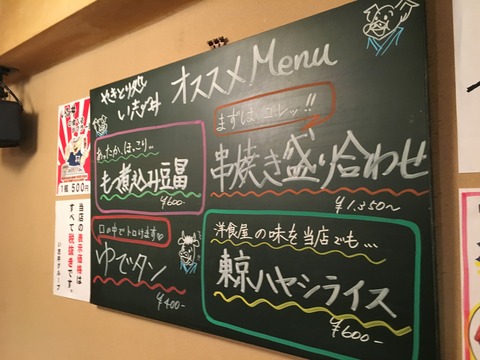 やきとり処
い志井
オススメMenu
あったか、ほっこり…
もつ煮込み豆腐
¥600-
口の中でトロけます
ゆでタン
¥400-
まずはコレッ!!
串焼き盛り合わせ
¥1,350~
洋食屋の味を当店でも…
東京ハヤシライス
¥600-
1瓶 500円
当店の表示価格は
すべて税抜きです
い志井グループ